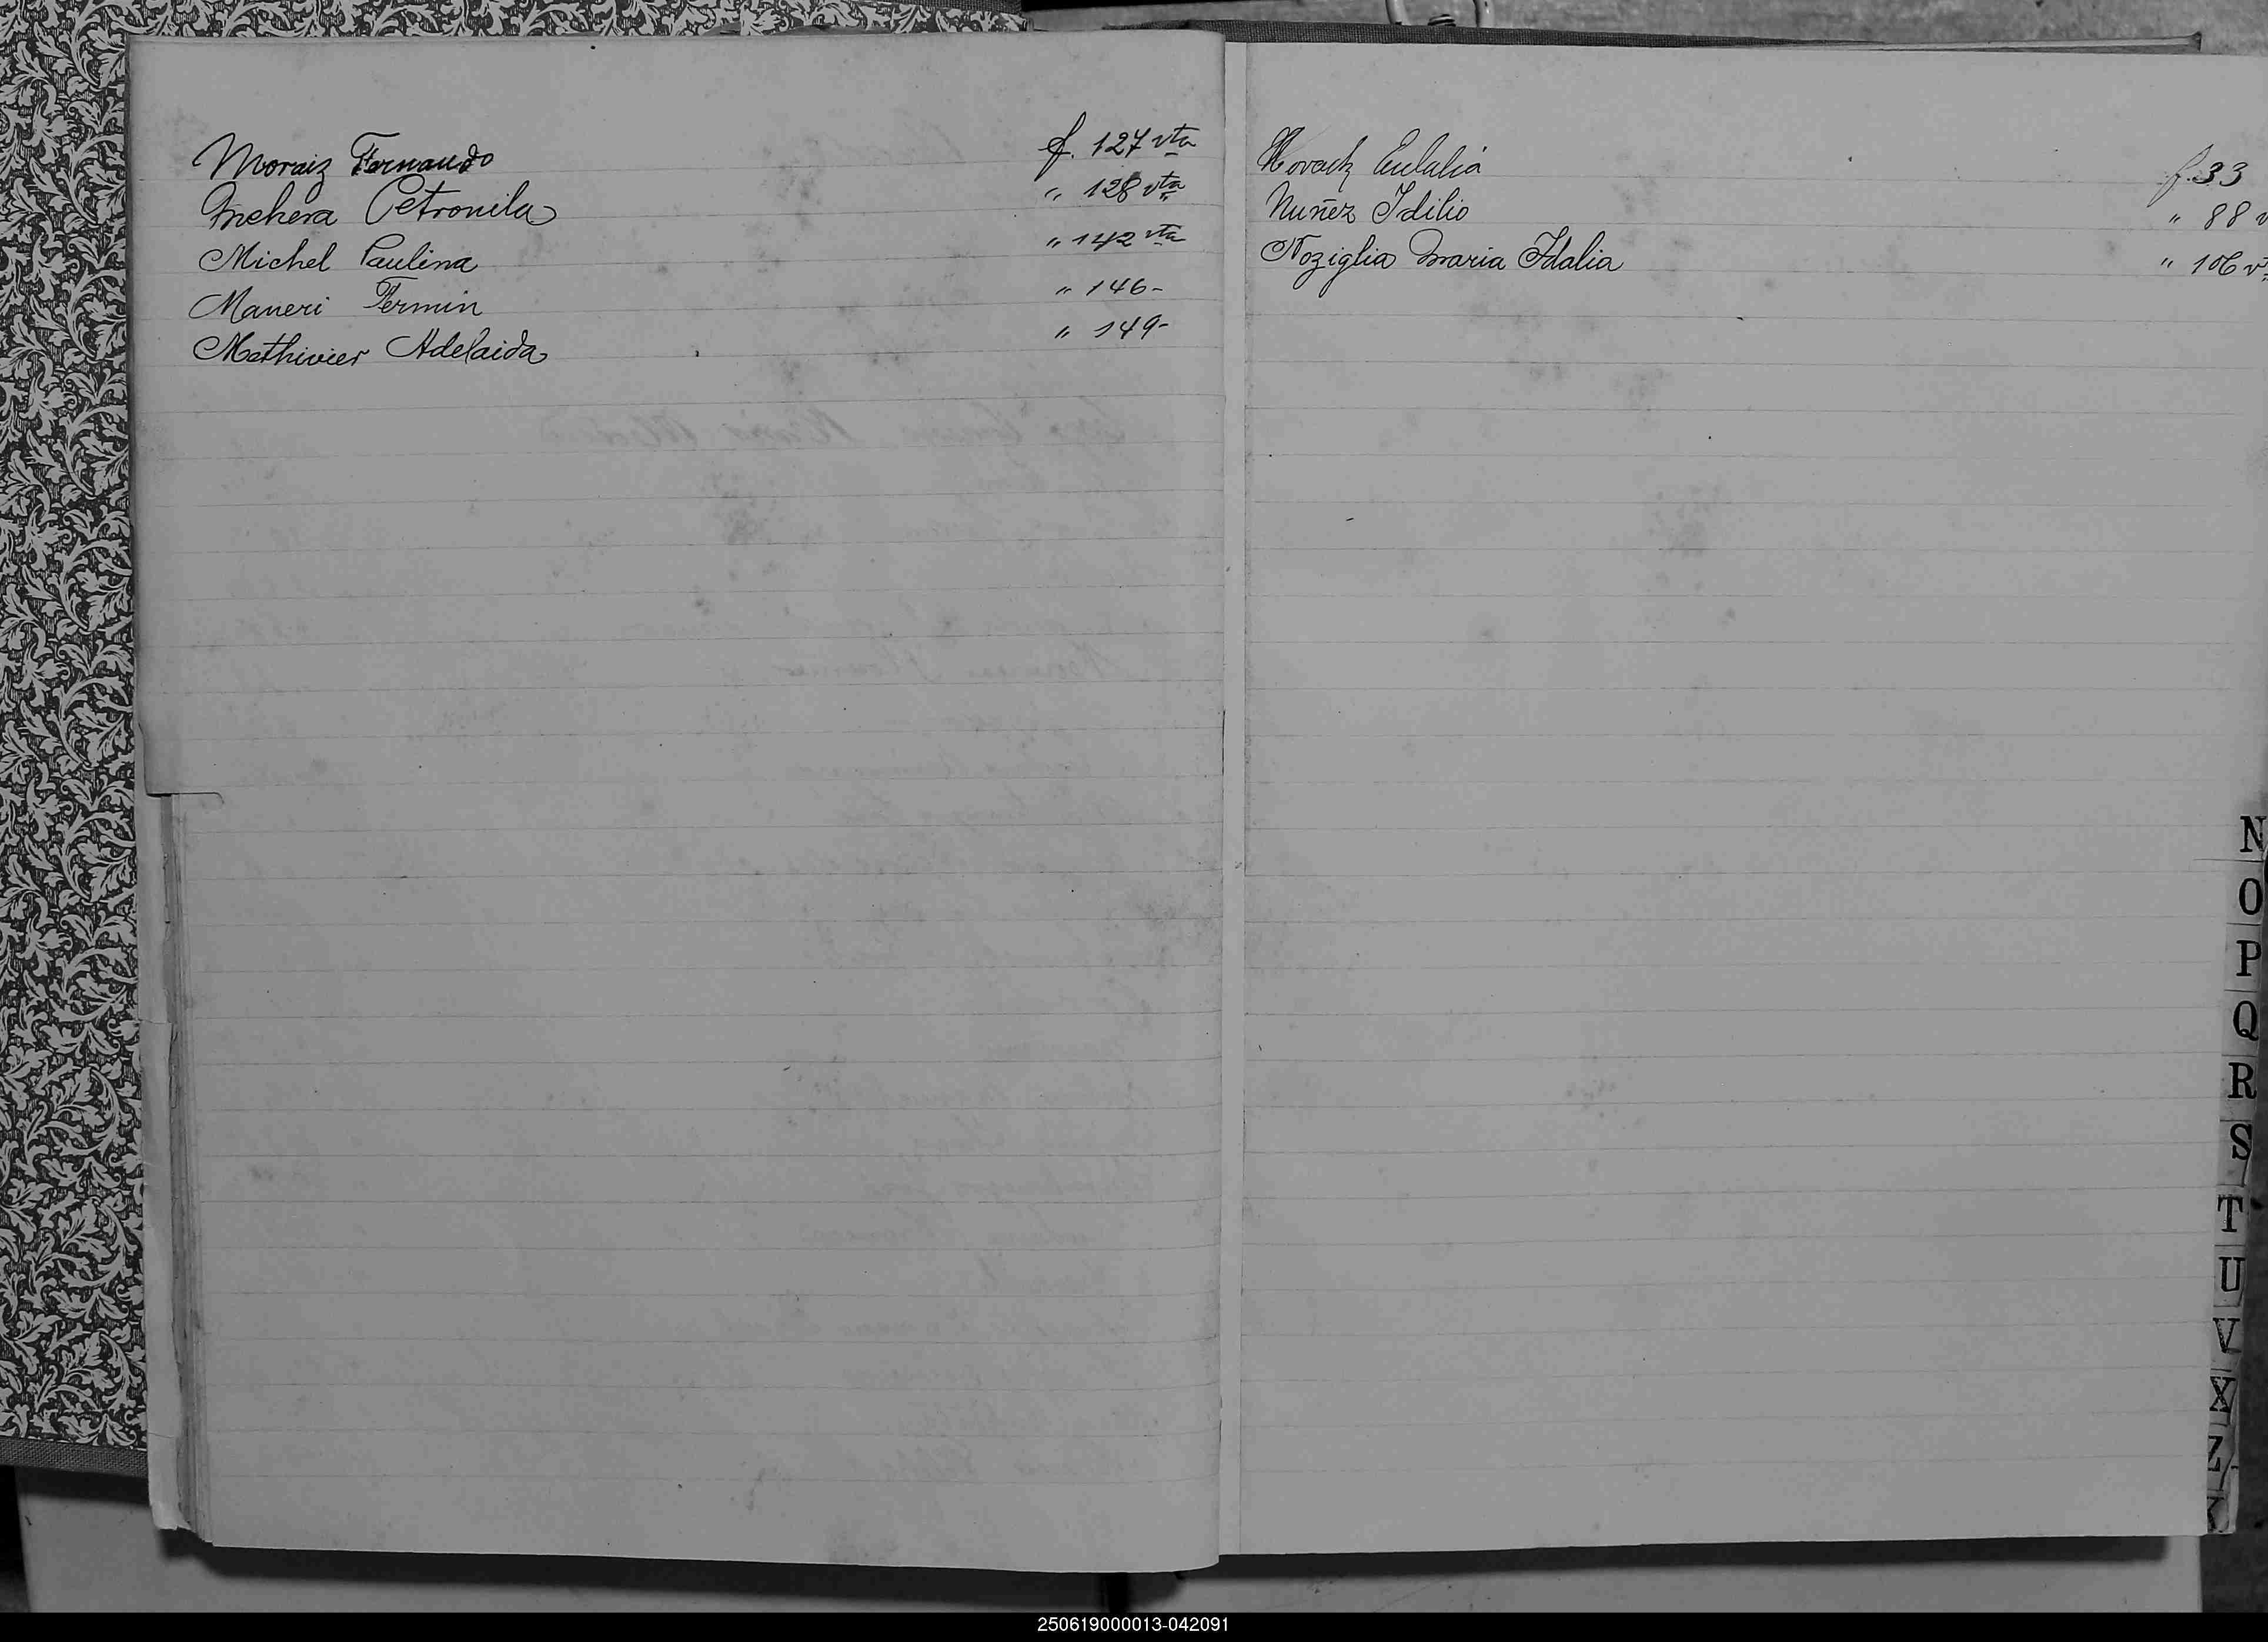 Moraiz Fernando f. 127 vta
Mehera Petronila " 128 vta
Michel Paulina " 142 vta
Maneri Fermin " 146-
Mathivier Adelaida " 149-
Novack Eulalia f. 33
Nuñez Idilio " 88 v
Noziglia Maria Idalia " 106 vt
N
O
P
Q
R
S
T
U
V
X
Z
K
250619000013-042091